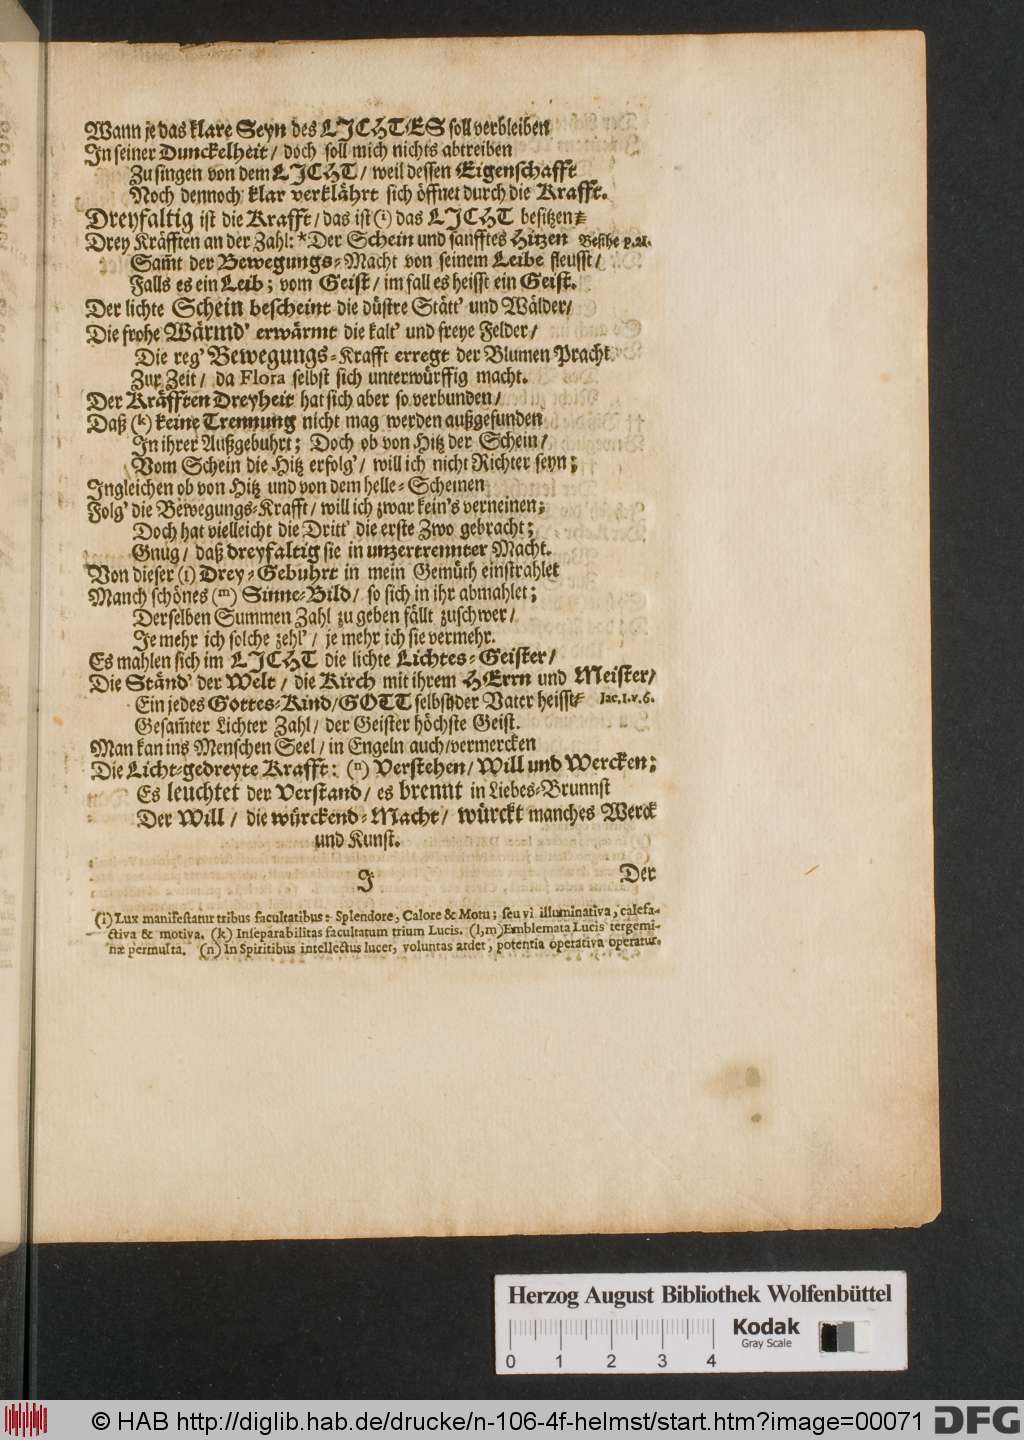 Wann je das klare Seyn des LICHTES soll verbleiben
In seiner Dunckelheit / doch soll mich nichts abtreiben
Zu singen von dem LICHT / weil dessen Eigenschafft
Noch dennoch klar verklährt sich öffnet durch die Krafft.
Dreyfaltig ist die Krafft / das ist (i) das LICHT besitzen
Drey Kräfften an der Zahl: *Der Schein und sanfftes Hitzen Besihe p. 21.
Sam̃t der Bewegungs-Macht von seinem Leibe fleusst /
Falls es ein Leib; vom Geist / im fall es heisst ein Geist.
Der lichte Schein bescheint die düstre Stätt' und Wälder /
Die frohe Wärmd' erwärmt die kalt' und freye Felder /
Die reg' Bewegungs-Krafft erregt der Blumen Pracht
Zur Zeit / da Flora selbst sich unterwürffig macht.
Der Kräfften Dreyheit hat sich aber so verbunden /
Daß (k) keine Trennung nicht mag werden außgefunden
In ihrer Außgebuhrt; Doch ob von Hitz der Schein /
Vom Schein die Hitz erfolg' / will ich nicht Richter seyn;
Ingleichen ob von Hitz und von dem helle-Scheinen
Folg' die Bewegungs-Krafft / will ich zwar kein's verneinen;
Doch hat vielleicht die Dritt' die erste Zwo gebracht;
Gnug / daß dreyfaltig sie in unzertrennter Macht.
Von dieser (l) Drey-Gebuhrt in mein Gemüth einstrahlet
Manch schönes (m) Sinne-Bild / so sich in ihr abmahlet;
Derselben Summen Zahl zu geben fällt zuschwer /
Je mehr ich solche zehl' / je mehr ich sie vermehr.
Es mahlen sich im LICHT die lichte Lichtes-Geister /
Die Ständ' der Welt / die Kirch mit ihrem HErrn und Meister /
Ein jedes Gottes-Kind / GOTT selbst der Vater heisst Jac. 1. v. 6.
Gesam̃ter Lichter Zahl / der Geister höchste Geist.
Man kan ins Menschen Seel / in Engeln auch / vermercken
Die Licht-gedreyte Krafft: (n) Verstehen / Will und Wercken;
Es leuchtet der Verstand / es brennt in Liebes-Brunnst
Der Will / die würckend-Macht / würckt manches Werck
und Kunst.
J Der
(i) Lux manifestatur tribus facultatibus: Splendore, Calore & Motu; seu vi illuminativa, calefa-
ctiva & motiva. (k) Inseparabilitas facultatum trium Lucis. (l,m) Emblemata Lucis tergemi-
næ permulta. (n) In Spiritibus intellectus lucet, voluntas ardet, potentia operativa operatur.
Herzog August Bibliothek Wolfenbüttel
Kodak
Gray Scale
0 1 2 3 4
© HAB http://diglib.hab.de/drucke/n-106-4f-helmst/start.htm?image=00071 DFG